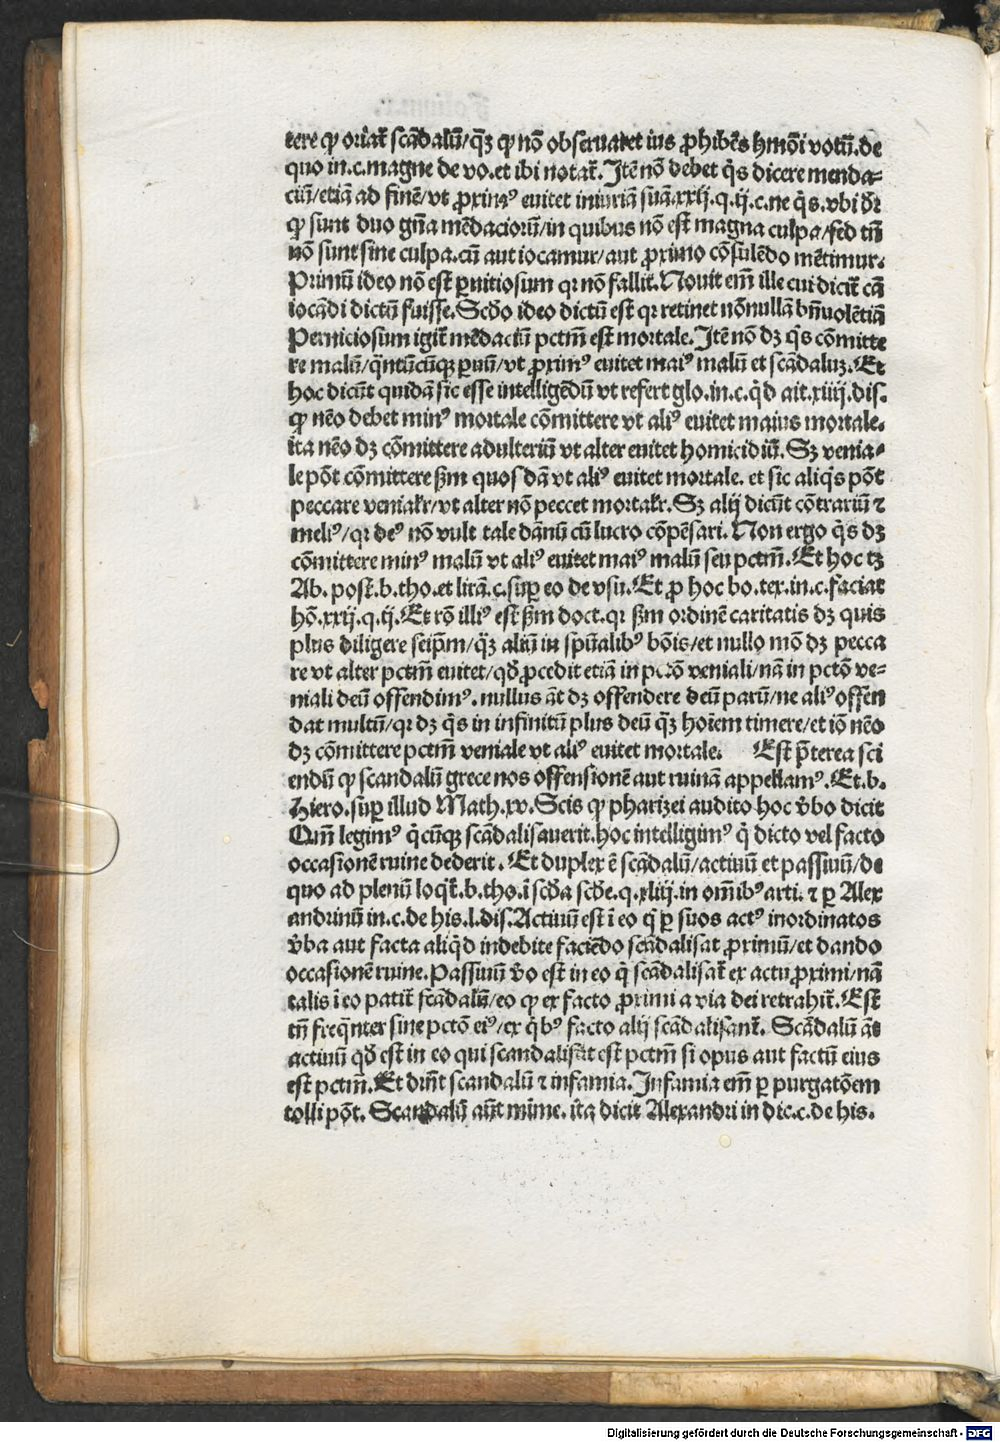 tere ꝙ oriat᷑ scādalū/q̄ꝫ ꝙ nō obseruaret ius ꝓhibēs hmōi votū.de
quo in.c.magne de vo.et ibi notat᷑.Itē nō debet q̇s dicere menda⸗
ciū/etiā ad finē/vt ꝓximꝰ euitet iniuriā suā.xxij.q.ij.c.ne q̇s.vbi dr̄
ꝙ sunt duo gn̄a mēdaciorū/in quibus nō est magna culpa/sed tn̄
nō sunt sine culpa.cū aut iocamur/aut ꝓximo cōsulēdo mētimur.
Primū ideo nō est ꝑnitiosum qꝛ nō fallit.Nouit em̄ ille cui dicit᷑ cā
iocādi dictū fuisse.Scd̄o ideo dictū est qꝛ retinet nōnullā bn̄uolētiā
Perniciosum igit᷑ mēdaciū pctm̄ est mortale.Itē nō dꝫ q̇s cōmitte
re malū/q̄ntūcūqꝫ ꝑuū/vt ꝓximꝰ euitet maiꝰ malū et scādaluꝫ.Et
hoc dicūt quidā sic esse intelligēdū vt refert glo.in.c.q̇d ait.xiiij.dis.
ꝙ nēo debet minꝰ mortale cōmittere vt aliꝰ euitet maius mortale.
ita nēo dꝫ cōmittere adulteriū vt alter euitet homicidiū.Sꝫ venia⸗
le pōt cōmittere ẜm quosdā vt aliꝰ euitet mortale. et sic aliq̇s pōt
peccare venialr̄/vt alter nō peccet mortalr̄.Sꝫ alij dicūt cōtrariū ⁊
meliꝰ/qꝛ deꝰ nō vult tale dānū cū lucro cōpēsari.Non ergo q̇s dꝫ
cōmittere minꝰ malū vt aliꝰ euitet maiꝰ malū seu pctm̄.Et hoc tꝫ
Ab. post.b.tho.et lirā.c.suꝑ eo de vsu.Et ꝓ hoc bo.tex.in.c.faciat
hō.xxij.q.ij.Et rō illiꝰ est ẜm doct.qꝛ ẜm ordinē caritatis dꝫ quis
plus diligere seip̄m/q̄ꝫ aliū in spūalibꝰ bōis/et nullo mō dꝫ pecca
re vt alter pctm̄ euitet/qd̄ ꝓcedit etiā in pctō veniali/nā in pctō ve⸗
niali deū offendimꝰ. nullus āt dꝫ offendere deū parū/ne aliꝰ offen
dat multū/qꝛ dꝫ q̇s in infinitū plus deū q̄ꝫ hoīem timere/et iō nēo
dꝫ cōmittere pctm̄ veniale vt aliꝰ euitet mortale. Est p̄terea sci
endū ꝙ scandalū grece nos offensionē aut ruinā appellamꝰ.Et.b.
Hiero.suꝑ illud Math.xv.Scis ꝙ pharizei audito hoc v̄bo dicit
Qm̄ legimꝰ q̇cūqꝫ scādalisauerit.hoc intelligimꝰ q̇ dicto vel facto
occasionē ruine dederit. Et duplex ē scādalū/actiuū et passiuū/de
quo ad plenū loqt᷑.b.tho.ī scd̄a scd̄e.q.xliij.in om̄ibꝰ arti. ⁊ ꝑ Alex
andrinū in.c.de his.l.dis.Actiuū est ī eo q̇ ꝑ suos actꝰ inordinatos
v̄ba aut facta aliq̇d indebite faciēdo scādalisat ꝓximū/et dando
occasionē ruine.Passiuū v̄o est in eo q̇ scādalisat᷑ ex actu ꝓximi/nā
talis ī eo patit᷑ scādalū/eo ꝙ ex facto ꝓximi a via dei retrahit᷑.Est
tn̄ freq̄nter sine pctō eiꝰ/ex q̇bꝰ facto alij scādalisant᷑. Scādalū āt
actiuū qd̄ est in eo qui scandalisat est pctm̄ si opus aut factū eius
est pctm̄.Et dn̄t scandalū ⁊ infamia.Infamia em̄ ꝑ purgatōem
tolli pōt. Scandalū aūt mīme. ita dicit Alexandri in dic.c.de his.
Digitalisierung gefördert durch die Deutsche Forschungsgemeinschaft - DFG